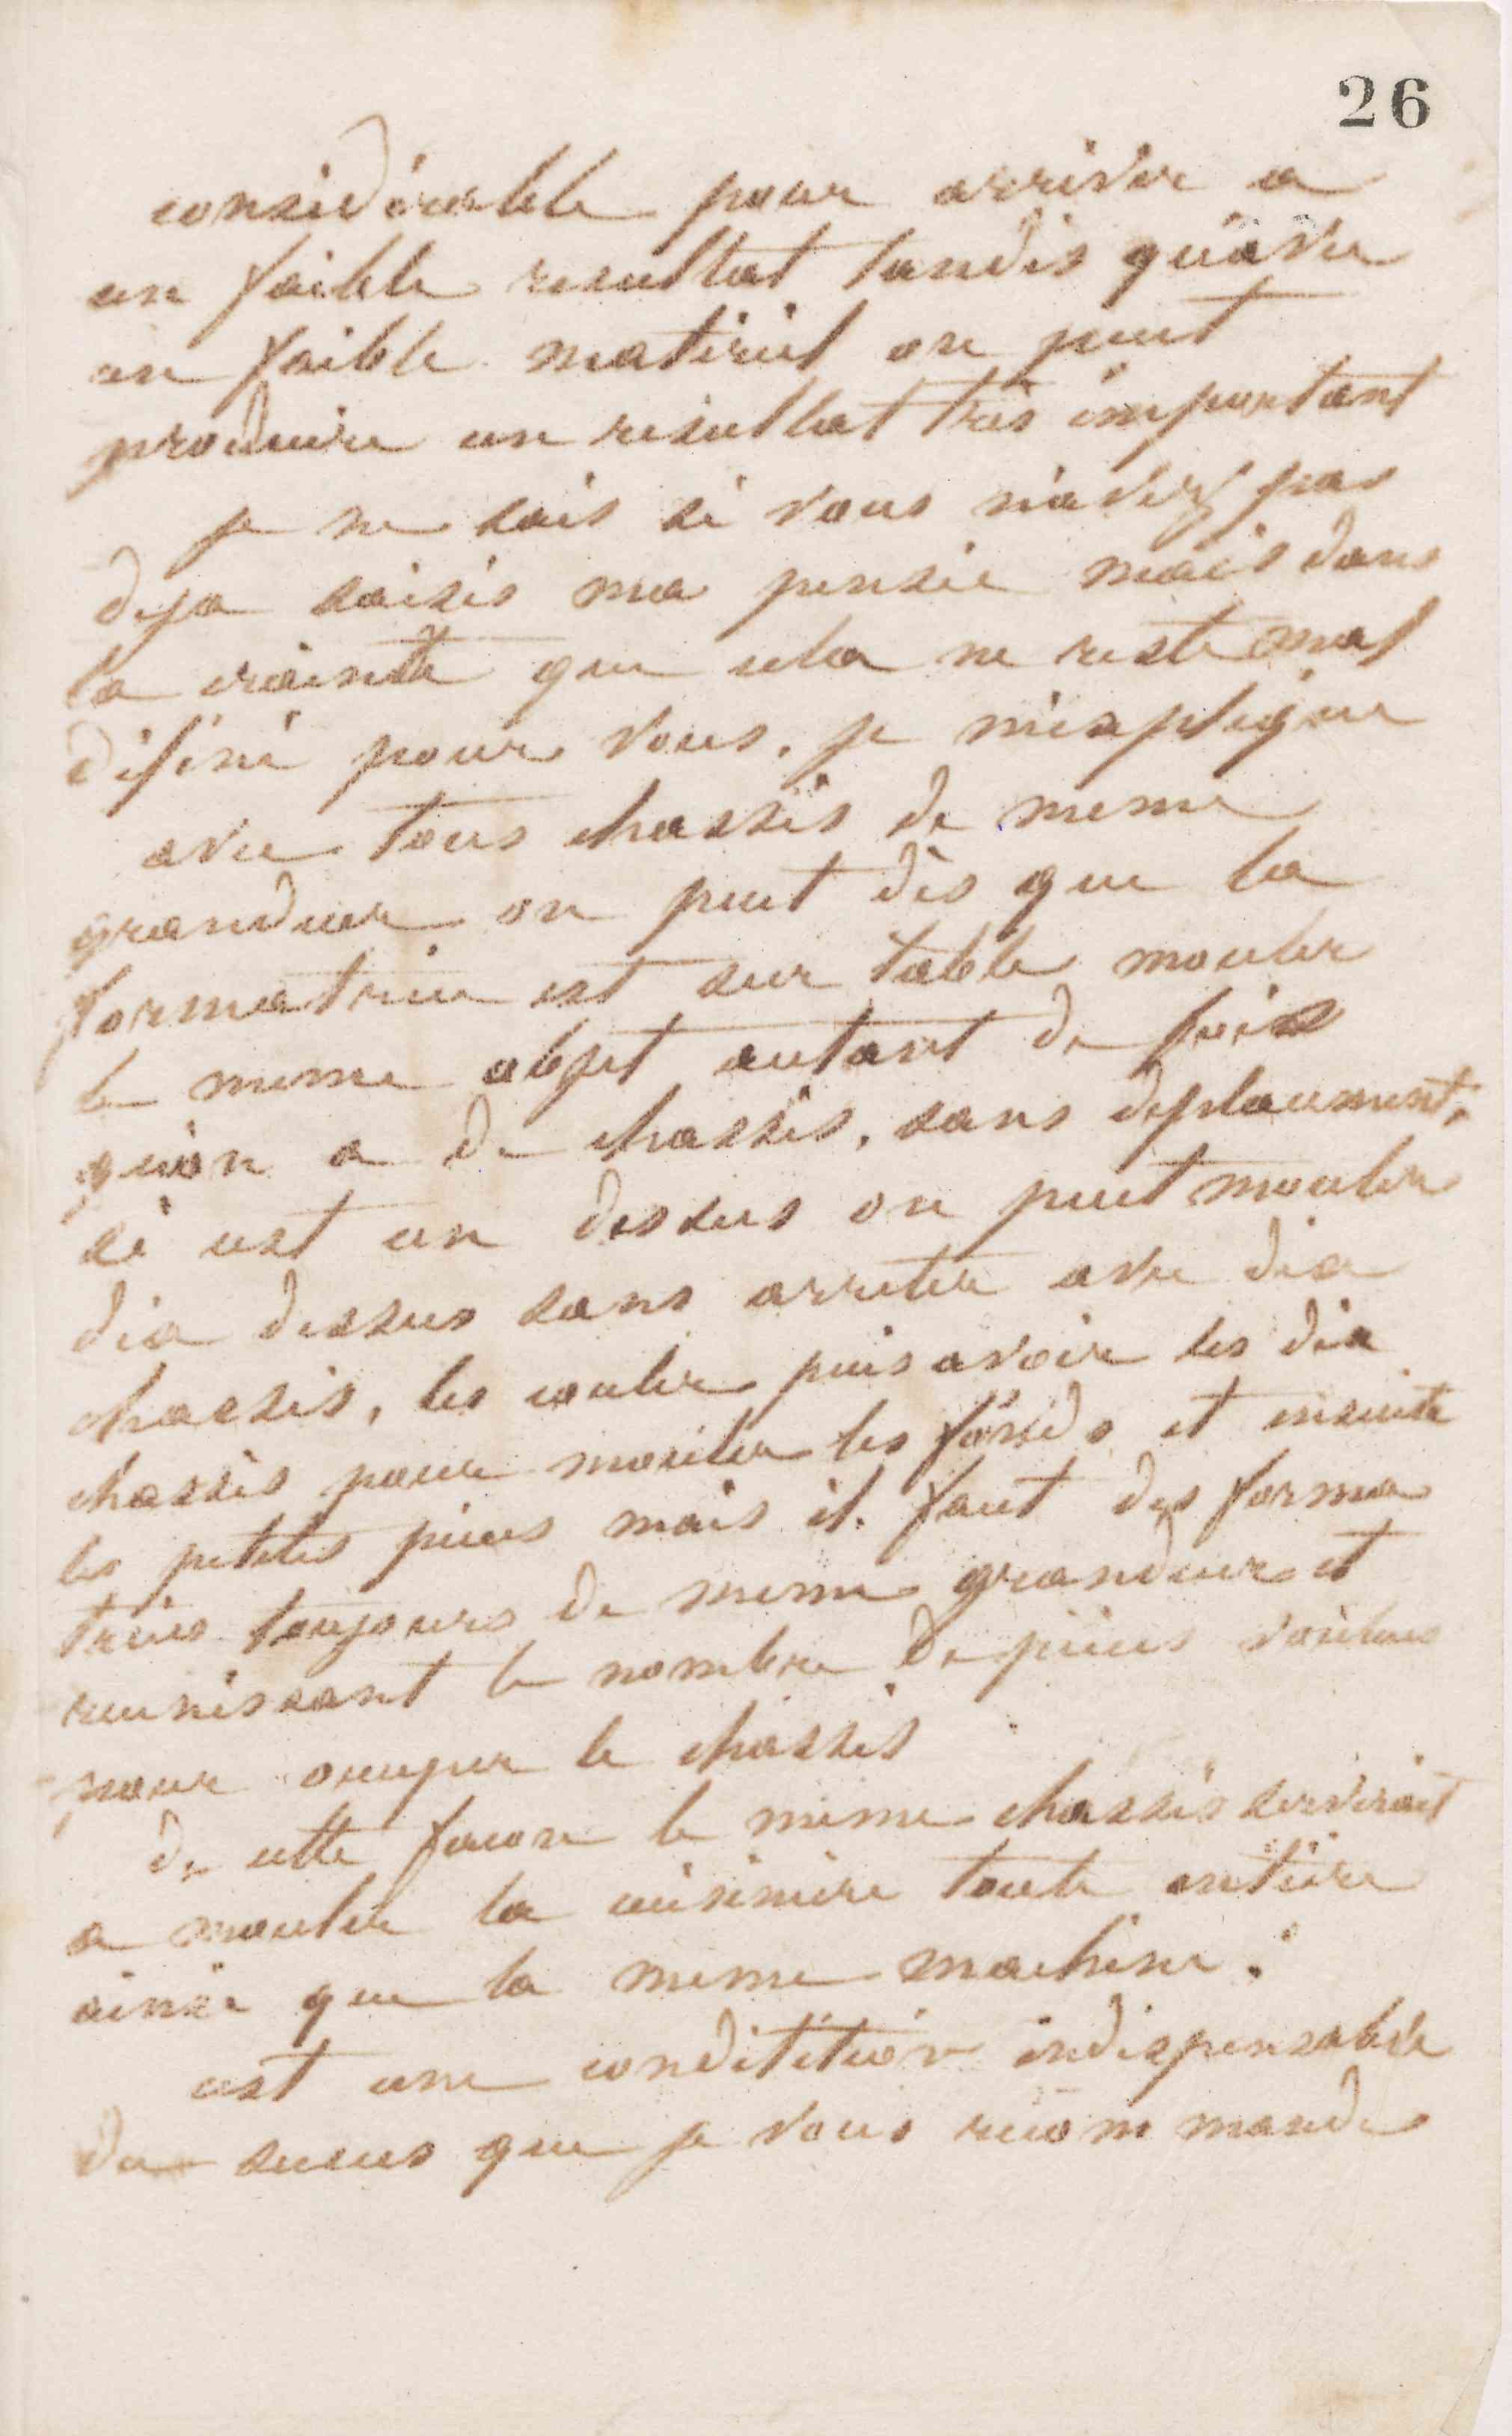 26
considérable pour arriver a
un faible resultat tandis qu'avec
un faible matériel on peut
produire un résultat très important
je ne sais si vous n'avez pas
deja saisis ma pensée mais dans
la crainte que cela ne reste mal
défini pour vous, je m'explique
avec tous chassis de meme
grandeur on peut dès que la
formatrice est sur table mouler
le meme objet autant de fois
qu'on a de chassis, sans deplacement,
si cest un dessus on peut mouler
dix dessus sans arreter avec dix
chassis, les couler puis avoir les dix
chassis pour mouler les fonds et ensuite
les petites pièces mais il faut des forma
trices toujours de meme grandeur et
reunissant le nombre de pièces voulues
pour occuper le chassis
de cette facon le meme chassis servirait
a mouler la cuisinière toute entière
ainsi que la meme machine.
cest une conditition indispensable
du succes que je vous recommande